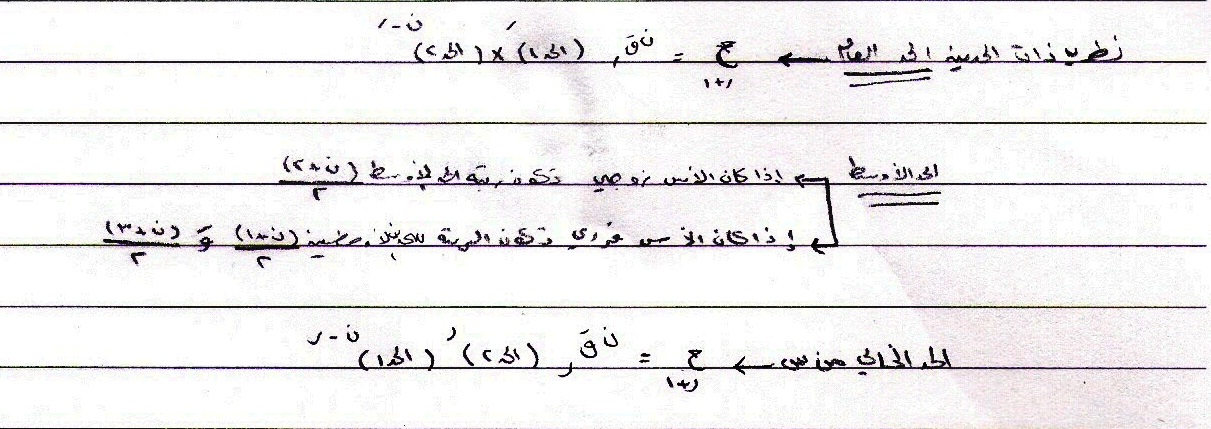 نظرية ذات الحدين الحد العام ← ح ر+١ = ن ق ر (الحد ١)^ر × (الحد ٢)^ن-ر
الحد الأوسط ← إذا كان الأس زوجي تكون رتبة الحد الأوسط (ن+٢)/٢
← إذا كان الأس فردي تكون الرتبة للحدين الأوسطين (ن+١)/٢ و (ن+٣)/٢
الحد الخالي من س ← ح ر+١ = ن ق ر (الحد ٢)^ر (الحد ١)^ن-ر